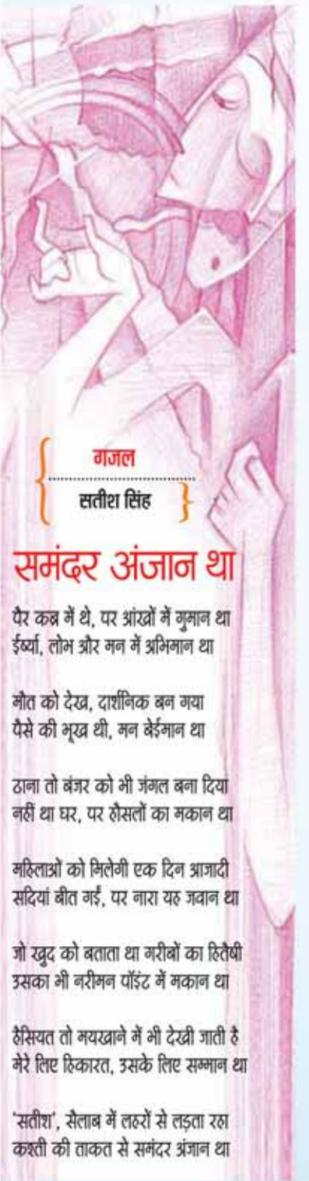 गजल
सतीश सिंह
समंदर अंजान था
पैर कब्र में थे, पर आंखों में गुमान था
ईर्ष्या, लोभ और मन में अभिमान था
मौत को देख, दार्शनिक बन गया
पैसे की भूख थी, मन बेईमान था
ठाना तो बंजर को भी जंगल बना दिया
नहीं था घर, पर हौसलों का मकान था
महिलाओं को मिलेगी एक दिन आजादी
सदियां बीत गईं, पर नारा यह जवान था
जो खुद को बताता था गरीबों का हितैषी
उसका भी नरीमन पॉइंट में मकान था
हैसियत तो मयखाने में भी देखी जाती है
मेरे लिए हिकारत, उसके लिए सम्मान था
'सतीश', सैलाब में लहरों से लड़ता रहा
कश्ती की ताकत से समंदर अंजान था